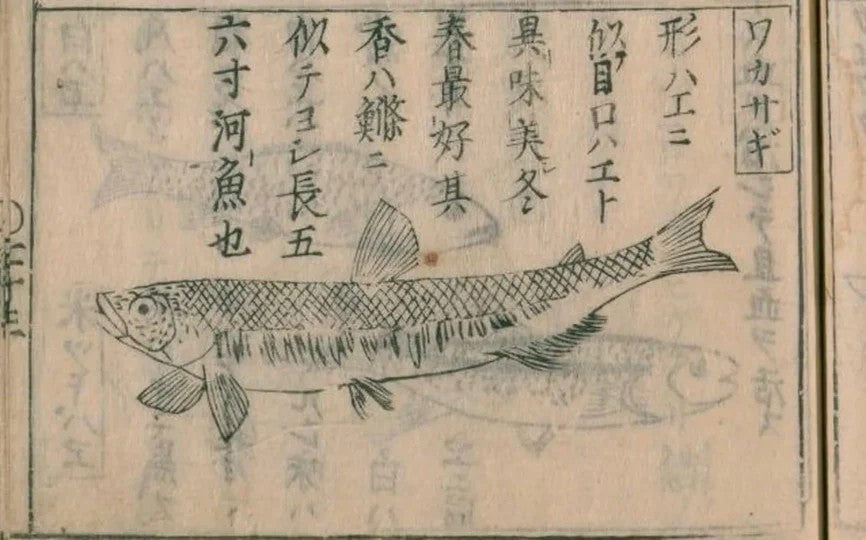 ワカサギ
形ハエニ
似目口ハエト
異味美シ冬
春最好其
香ハ鰷ニ
似テヨシ長五
六寸河魚也